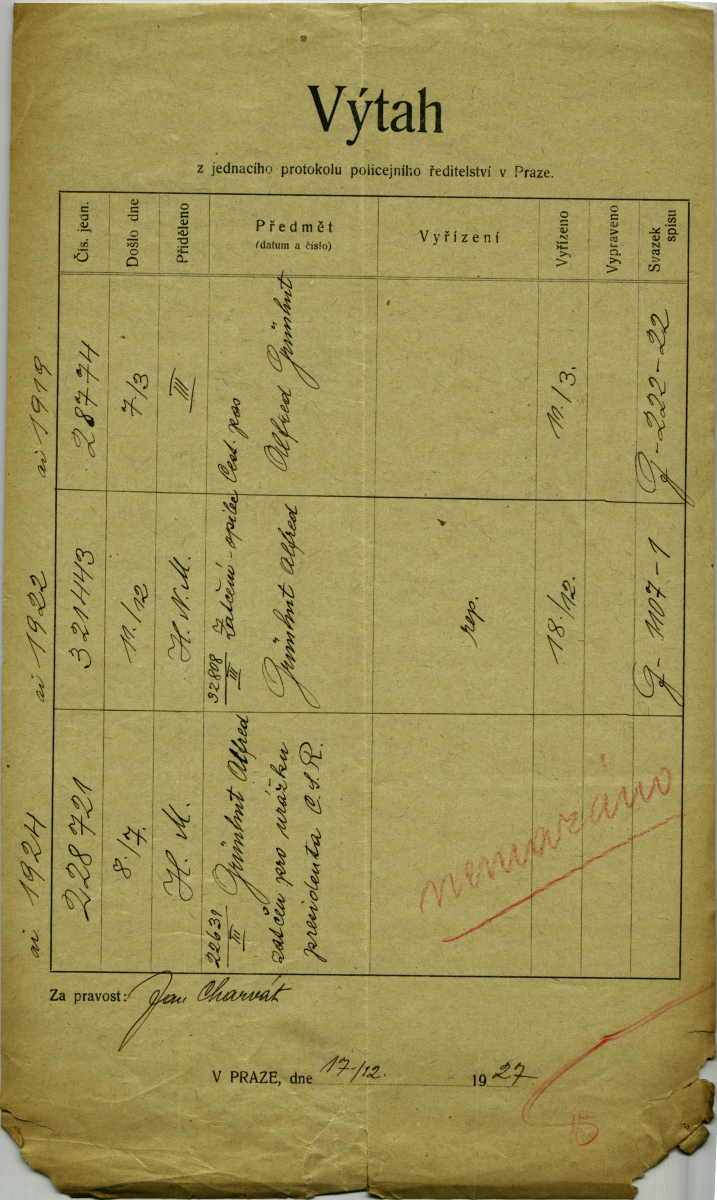 Výtah
z jednacího protokolu policejního ředitelství v Praze.
Čís. jedn.
Došlo dne
Přiděleno
Předmět
(datum a číslo)
Vyřízení
Vyřízeno
Vypraveno
Svazek
spisu
1919
28774
7/3
III
Cest. pas
Alfred
11./3.
G-222-22
1922
321443
11./12
H. N. M.
32808
III
Zatčení - opilec
Alfred
rep.
18./12.
G-1107-1
1924
228721
8./7.
H. M.
22631
III
Alfred
zatčen pro urážku
presidenta Č.S.R.
nemazáno
Za pravost: Jan Charvát
V PRAZE, dne 17/12. 1927
15